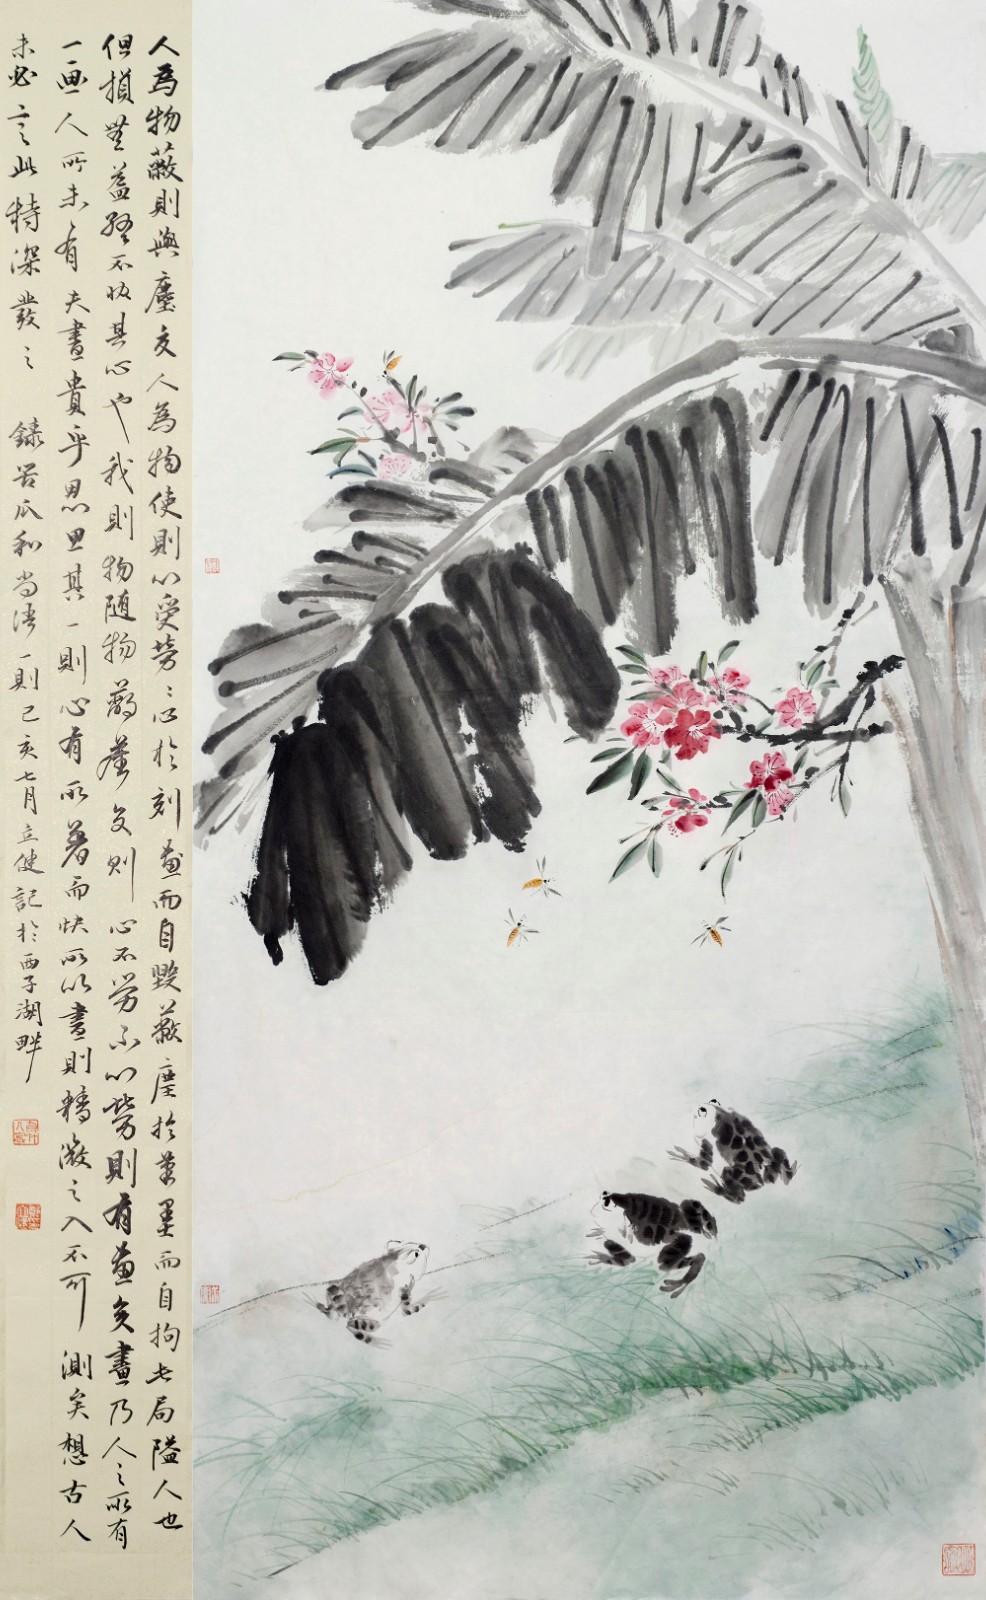 人為物蔽則與塵交人為物使則心受勞々心於刻畫而自毀蔽塵於筆墨而自拘此局隘人也
但損無益終不快其心也我則物随物蔽塵交則心不勞不心勞則有畫矣畫乃人之所有
一畫人所未有夫畫貴乎思思其一則心有所著而快所以畫則精微之入不可測矣想古人
未必言此特深發之 錄苦瓜和尚語一則己亥七月立健記於西子湖畔